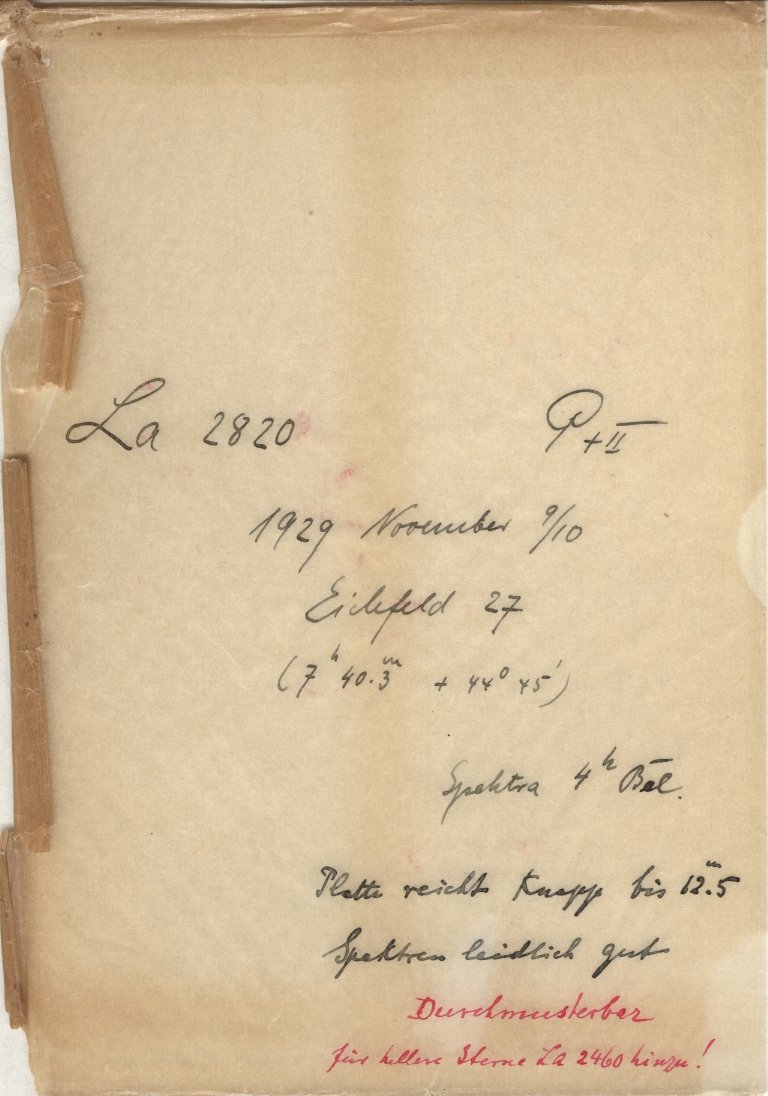 La 2820 P+II
1929 November 9/10
Eichfeld 27
(7h 40.m3 + 44° 45')
Spektra 4h Bel.
Platte reicht knapp bis 12.m5
Spektren leidlich gut
Durchmusterbar
für hellere Sterne La 2460 hinzu!